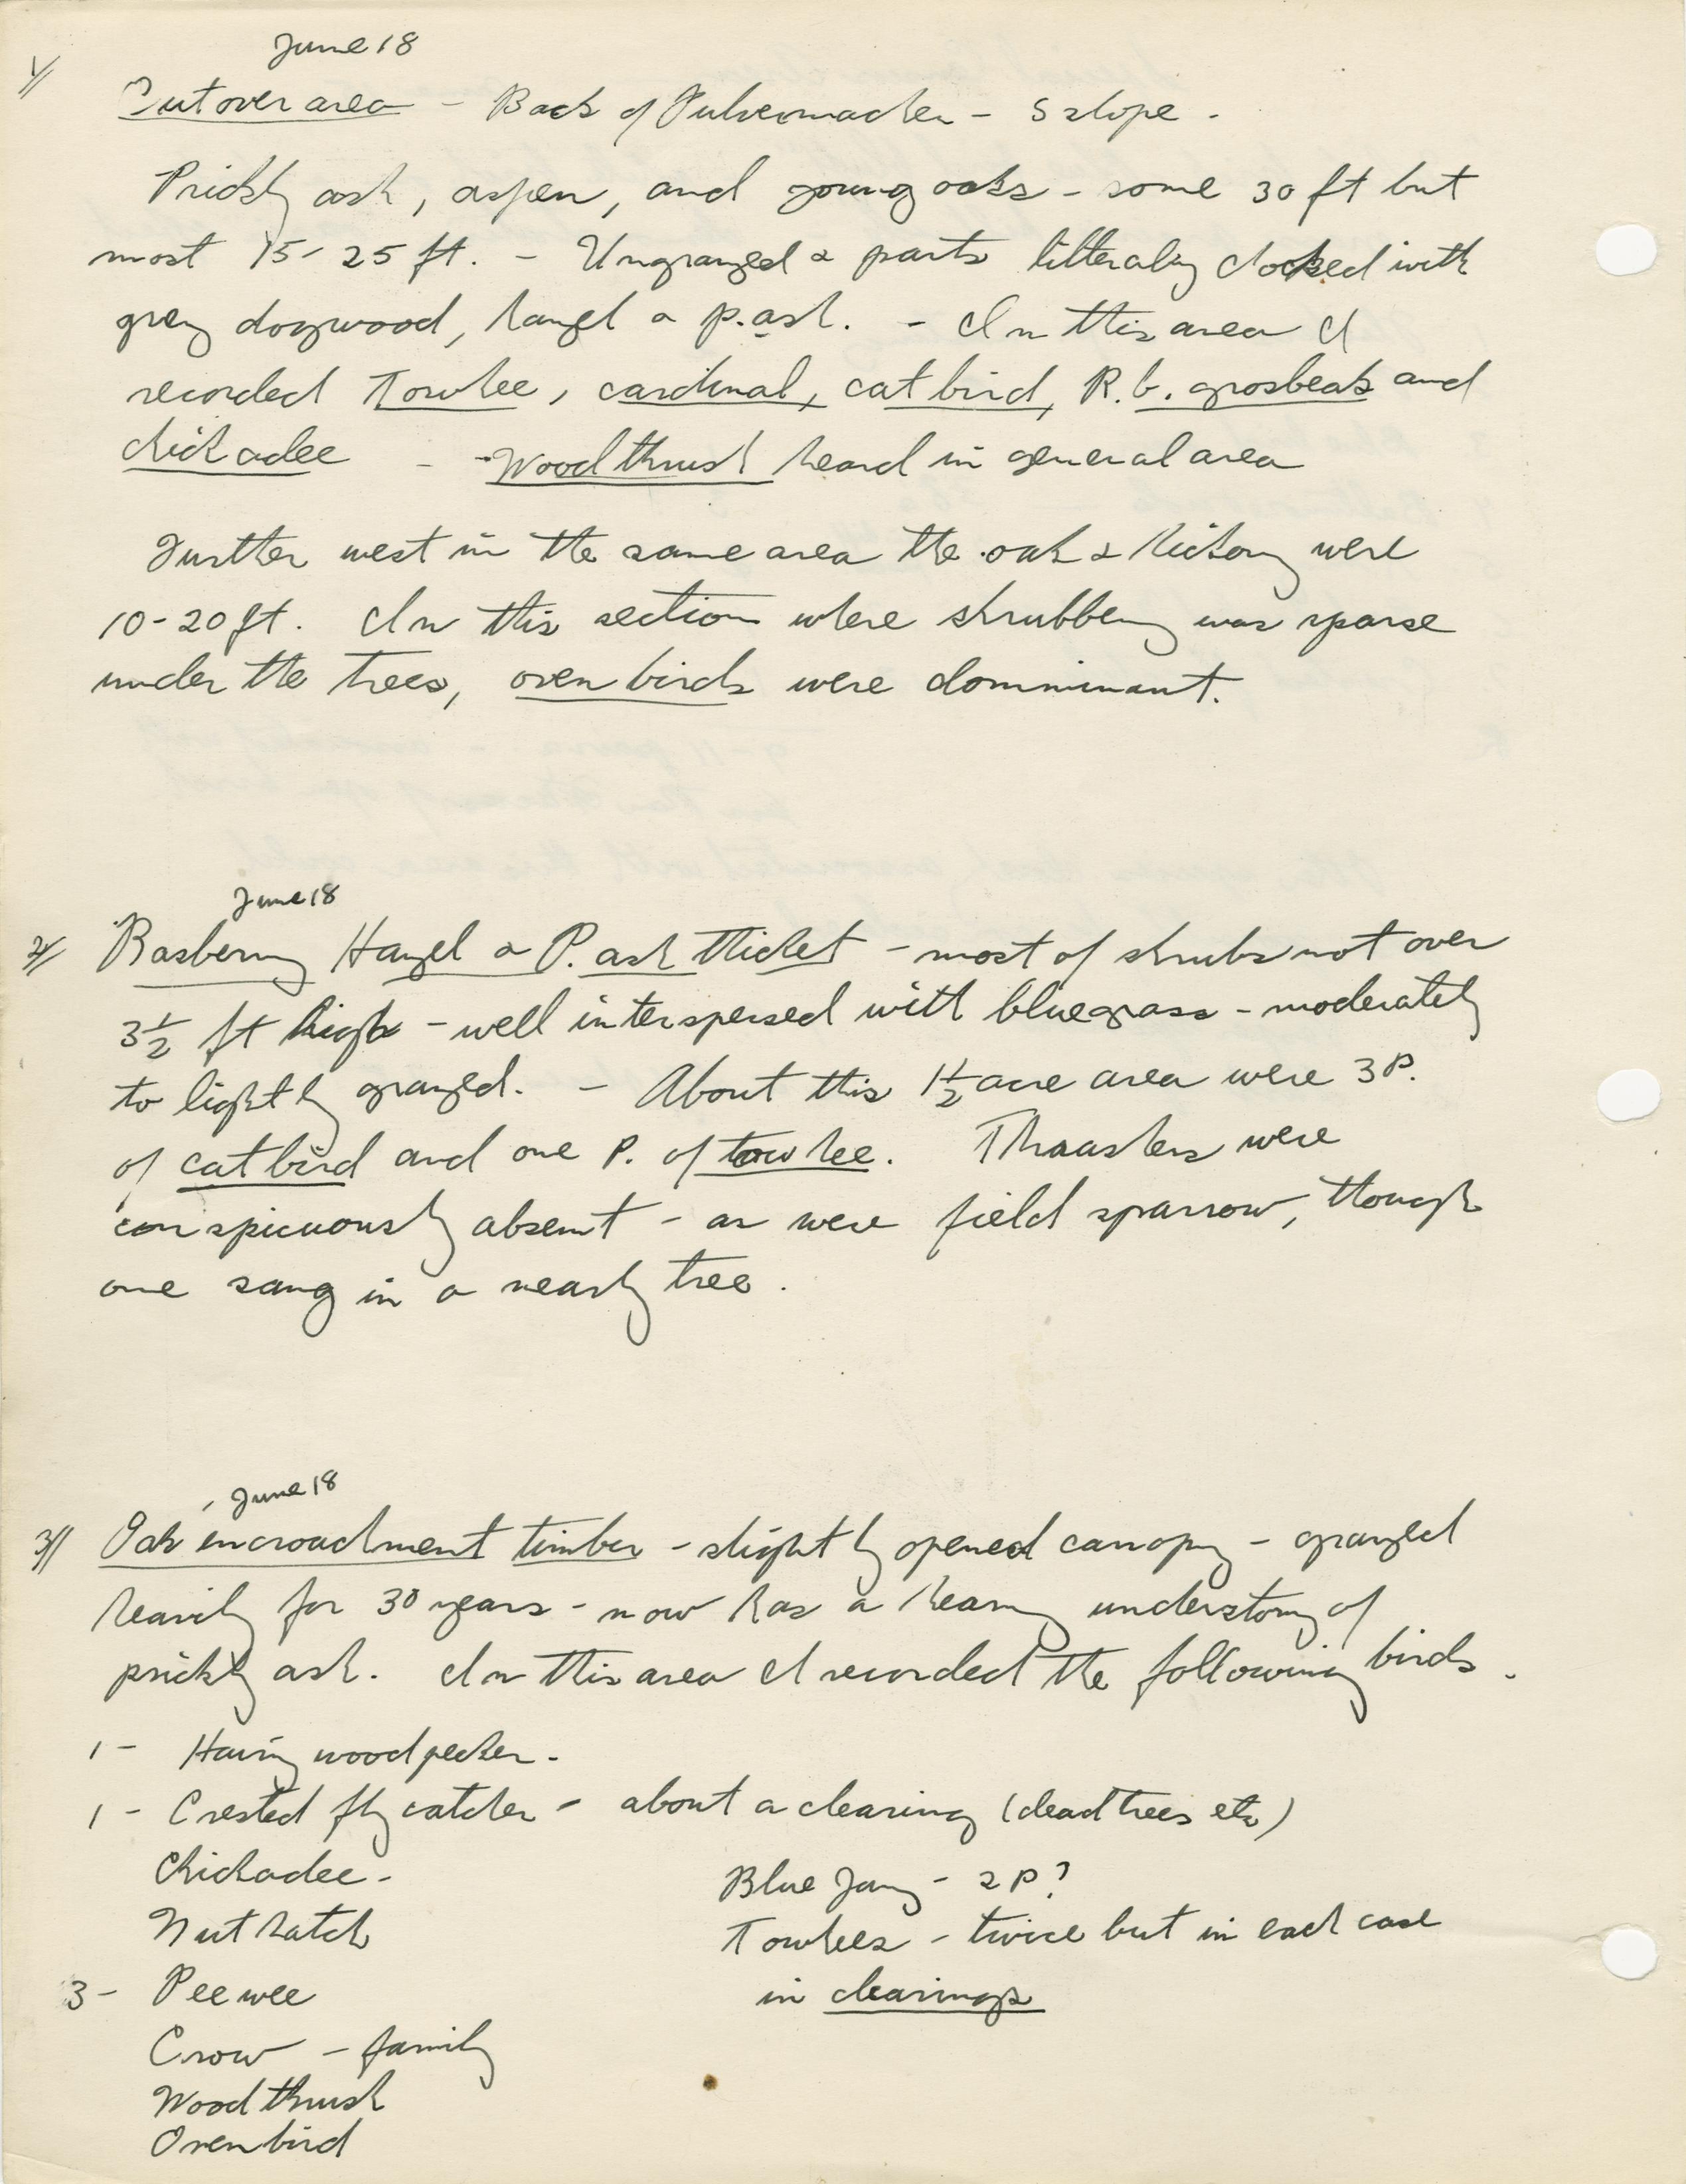 June 18
1/ Cutover area - Back of Pulvermacher - S slope .
Prickly ash, aspen, and young oaks - some 30 ft but
most 15-25 ft. - Ungrazed & parts litteraly clocked with
grey dogwood, hazel & p.ash. - In this area I
recorded Towhee, cardinal, catbird, R.b. grosbeak and
chickadee - - Wood thrush heard in general area
Further west in the same area the oak & hickory were
10-20 ft. In this section where shrubbery was sparse
under the trees, ovenbirds were domminant.
June 18
2/ Rasberry Hazel & P. ash thicket - most of shrubs not over
3 1/2 ft high - well interspersed with bluegrass - moderately
to lightly grazed. - About this 1 1/2 acre area were 3 P.
of catbird and one P. of towhee. Thrashers were
conspicuously absent - as were field sparrow, though
one sang in a nearby tree .
June 18
3/ Oak encroachment timber - slightly opened canopy - grazed
heavily for 30 years - now has a heavy understory of
prickly ash. In this area I recorded the following birds .
1 - Hairy woodpecker -
1 - Crested flycatcher - about a clearing (dead trees etc)
Chickadee -
Blue Jay - 2 P?
Nuthatch
Towhees - twice but in each case
3 - Peewee
in clearings
Crow - family
Wood thrush
Ovenbird